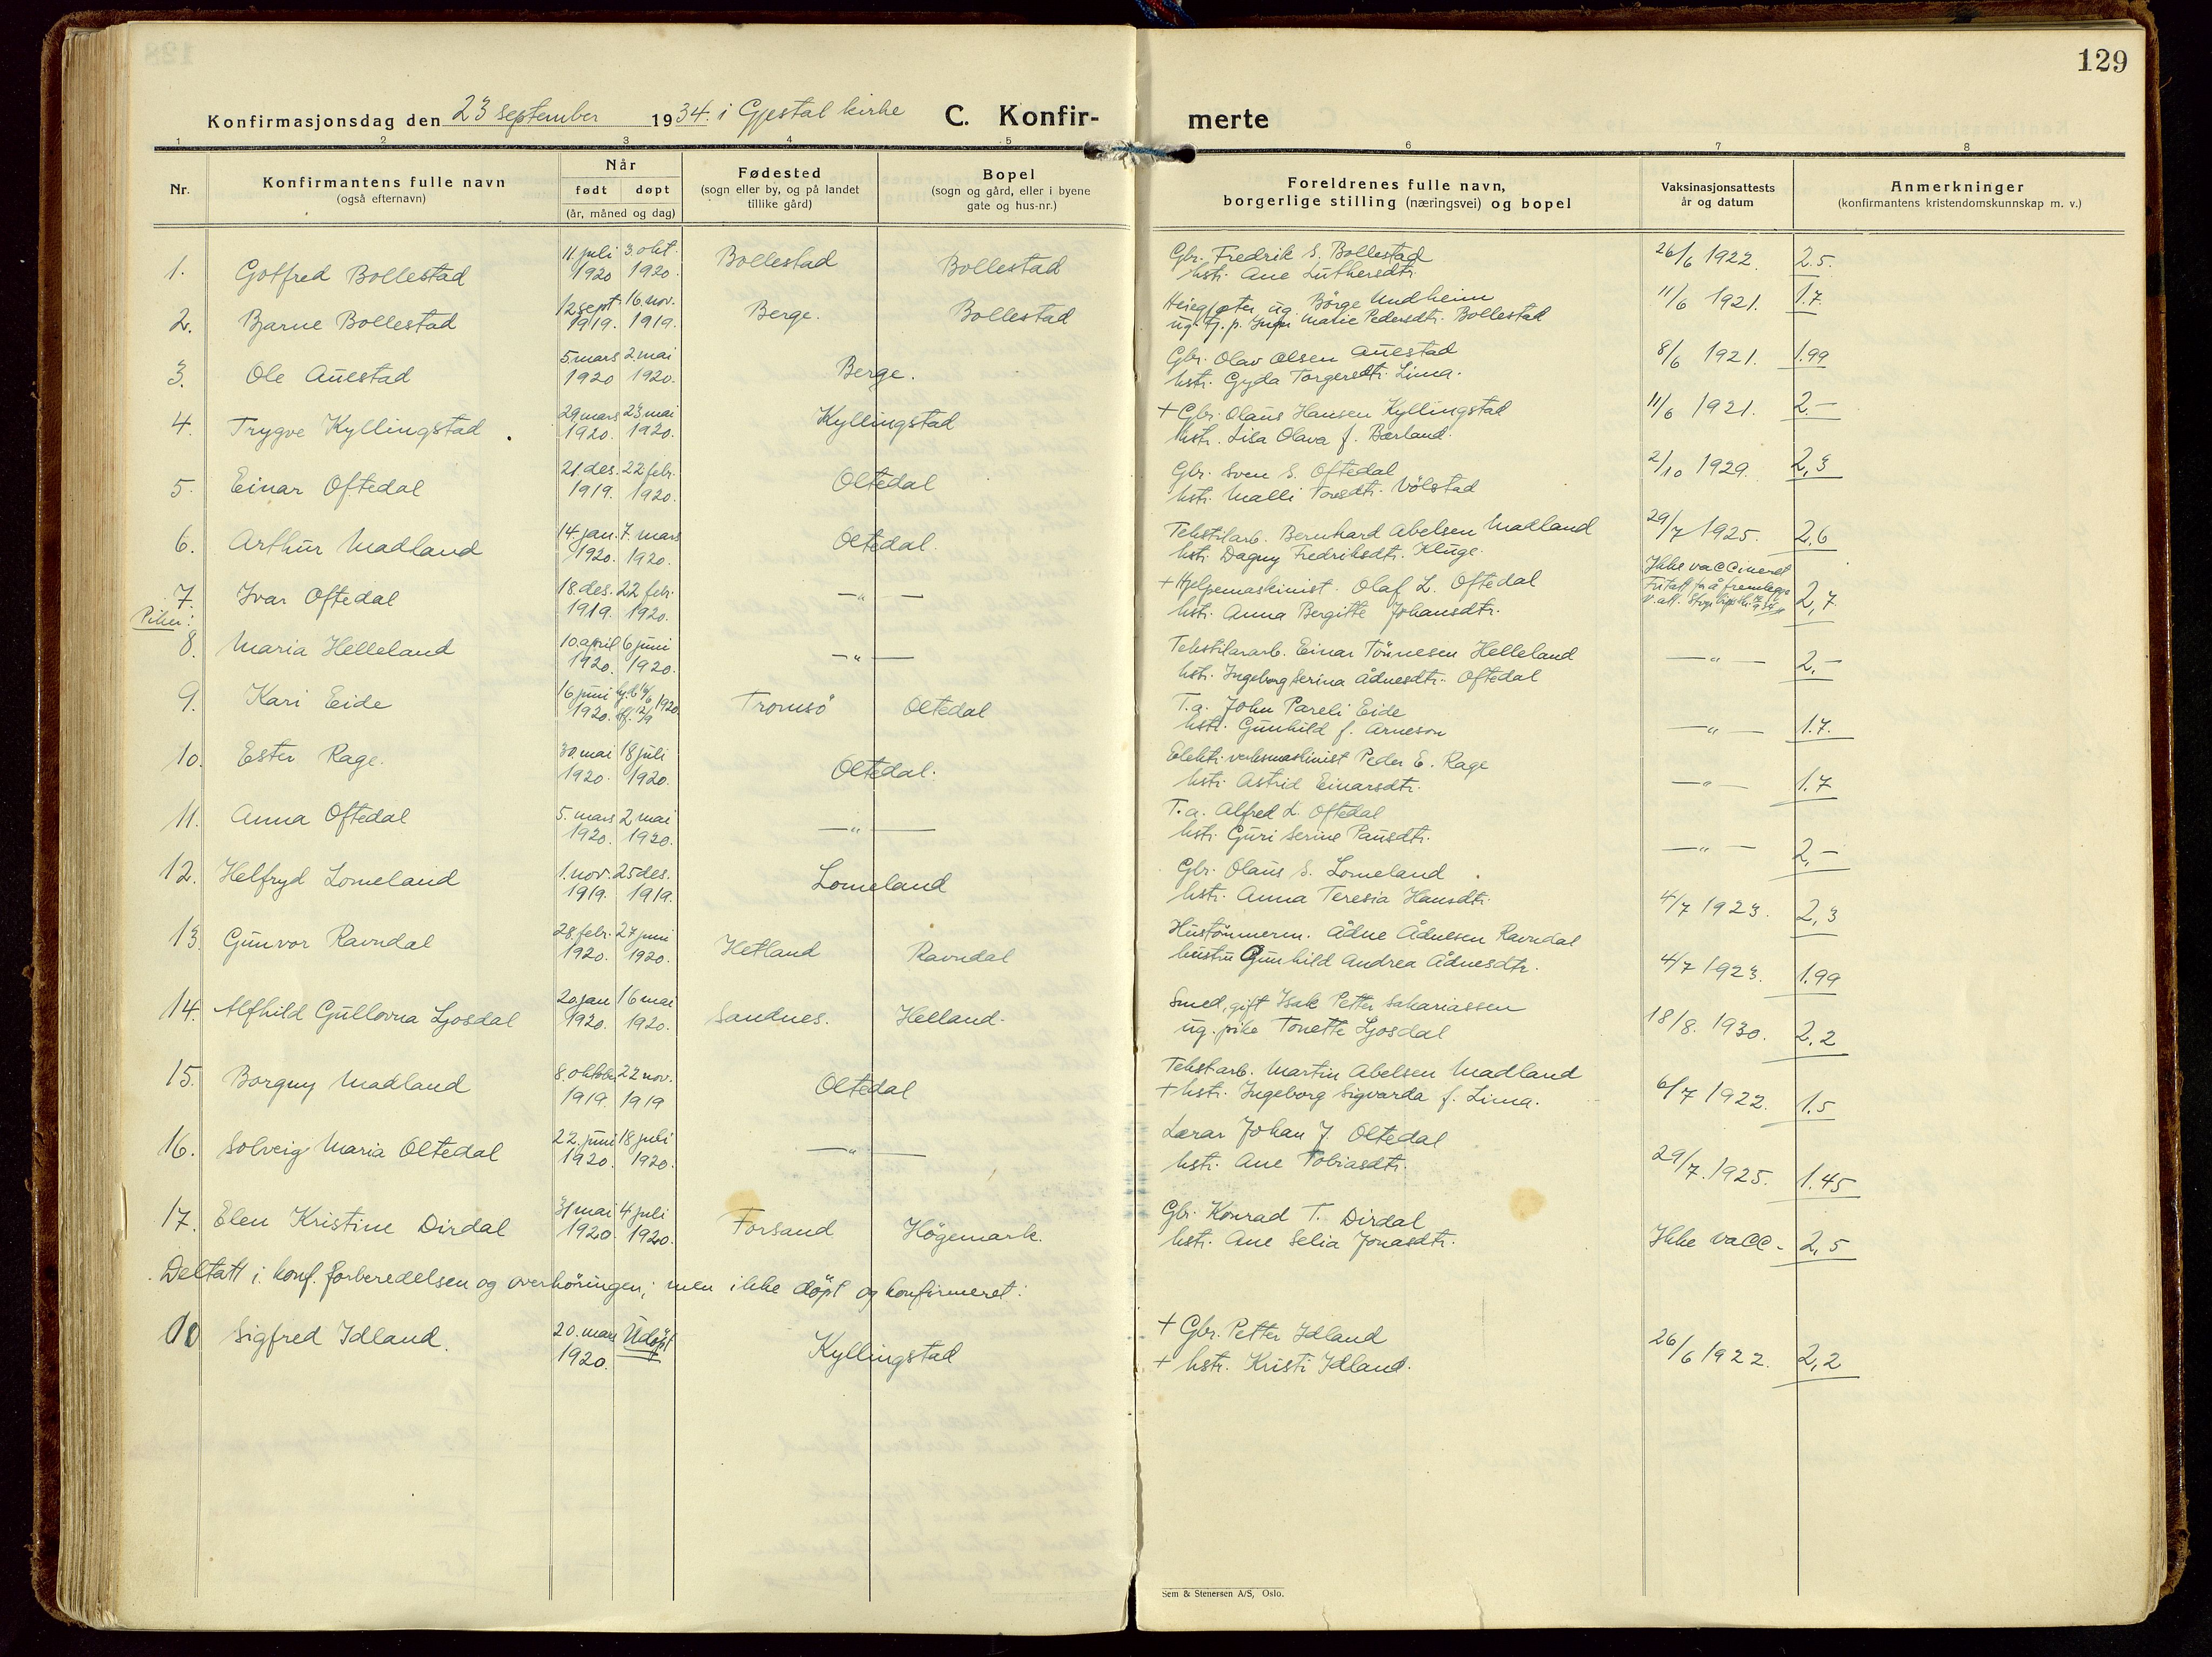 129
Konfirmasjonsdag den 23 september 1934. i Gjestal kirke C. Konfir- merte
1 2 3 4 5 6 7 8
Nr.
Konfirmantens fulle navn
(også efternavn)
Når
født døpt
(år, måned og dag)
Fødested
(sogn eller by, og på landet
tillike gård)
Bopel
(sogn og gård, eller i byene
gate og hus-nr.)
Foreldrenes fulle navn,
borgerlige stilling (næringsvei) og bopel
Vaksinasjonsattests
år og datum
Anmerkninger
(konfirmantens kristendomskunnskap m. v.)
1. Gotfred Bollestad 11 juli 1920 3. okt. 1920. Bollestad Bollestad
Gbr. Fredrik S. Bollestad
hstr. Ane Luthersdtr.
26/6 1922. 2.5.
2. Bjarne Bollestad 12 sept. 1919. 16. nov. 1919. Berge. Bollestad
ug. Børge Undheim
ug. tj. p. Inga Marie Pedersdtr. Bollestad
11/6 1921. 1.7.
3. Ole Auestad 5. mars 1920 2. mai 1920. Berge.
Gbr. Olav Olsen Auestad
hstr. Gyda Torgersdtr. Lima.
8/6 1921. 1.99
4. Trygve Kyllingstad 29 mars 1920. 23 mai 1920. Kyllingstad
+ Gbr. Olaus Hansen Kyllingstad
hstr. Lisa Olava f. Børland.
11/6 1921. 2.—
5. Einar Oftedal 21. des. 1919. 22 febr. 1920. Oltedal
Gbr. Sven S. Oftedal
hstr. Malli Toresdtr. Vølstad
2/10 1929. 2,3
6. Arthur Madland 14. jan. 1920. 7. mars 1920. Oltedal.
Tekstilarb. Bernhard Abelsen Madland
hstr. Dagny Fredriksdtr. Kluge.
29/7 1925. 2,6
7. Ivar Oftedal 18. des. 1919. 22 febr. 1920. —"—
+ Hjelpemaskinist. Olaf L. Oftedal
hstr. Anna Bergitte Johansdtr.
Ikke vaccineret
Fritatt for å fremlegge
2,7
Piker:
8. Maria Helleland 10. april 1920. 6 juni 1920. —"—
Tekstilararb. Einar Tønnesen Helleland
hstr. Ingeborg Serina Ådnesdtr. Oftedal
—"— 2.—
9. Kari Eide 16 juni 1920. 1920. Tromsø Oltedal
T.a. John Pareli Eide
hstr. Gunhild f. Arneson
—"— 1.7.
10. Ester Rage. 30. mai 1920. 18 juli 1920. Oltedal.
Elektr. verksmaskinist Peder E. Rage
hstr. Astrid Einarsdtr.
—"— 1.7
11. Anna Oftedal 5. mars 1920. 2 mai 1920. —"—
T.a. Alfred L. Oftedal
hstr. Guri Serine Pausdtr.
—"— 2,—
12. Helfryd Lomeland 1. nov. 1919. 25 des. 1919. Lomeland
Gbr. Olaus S. Lomeland
hstr. Anna Teresia Hansdtr.
4/7 1923. 2,3
13. Gunvor Ravndal 28. febr. 1920. 27 juni 1920. Hetland Ravndal
Hustømmerm. Ådne Ådnesen Ravndal
hustru Gunhild Andrea Ådnesdtr.
4/7 1923. 1.99
14. Alfhild Gullovna Ljosdal 20. jan 1920. 16 mai 1920. Sandnes. Helland.
Smed, gift Isak Petter Sakariassen
ug. pike Tonette Ljosdal
18/8. 1930. 2.2
15. Borgny Madland 8. oktober 1919. 22 nov. 1919 Oltedal
Tekstarb. Martin Abelsen Madland
+ hstr. Ingeborg Sigvarda f. Lima.
6/7 1922. 1.5
16. Solveig Maria Oltedal 22. juni 1920. 18 juli 1920. —"—
Lærar Johan J. Oltedal
hstr. Ane Tobiasdtr.
29/7. 1925. 1.45
17. Elen Kristine Dirdal 31 mai 1920. 4 juli 1920. Forsand Høgemark.
Gbr. Konrad T. Dirdal
hstr. Ane Selia Jonasdtr.
Ikke vacc. 2,5
Deltatt i konf. forberedelsen og overhøringen; men ikke døpt og konfirmeret:
Sigfred Idland. 20. mars 1920. Udøpt Kyllingstad
+ Gbr. Petter Idland
+ hstr. Kristi Idland.
26/6 1922. 2,2
Sem & Stenersen A/S, Oslo.